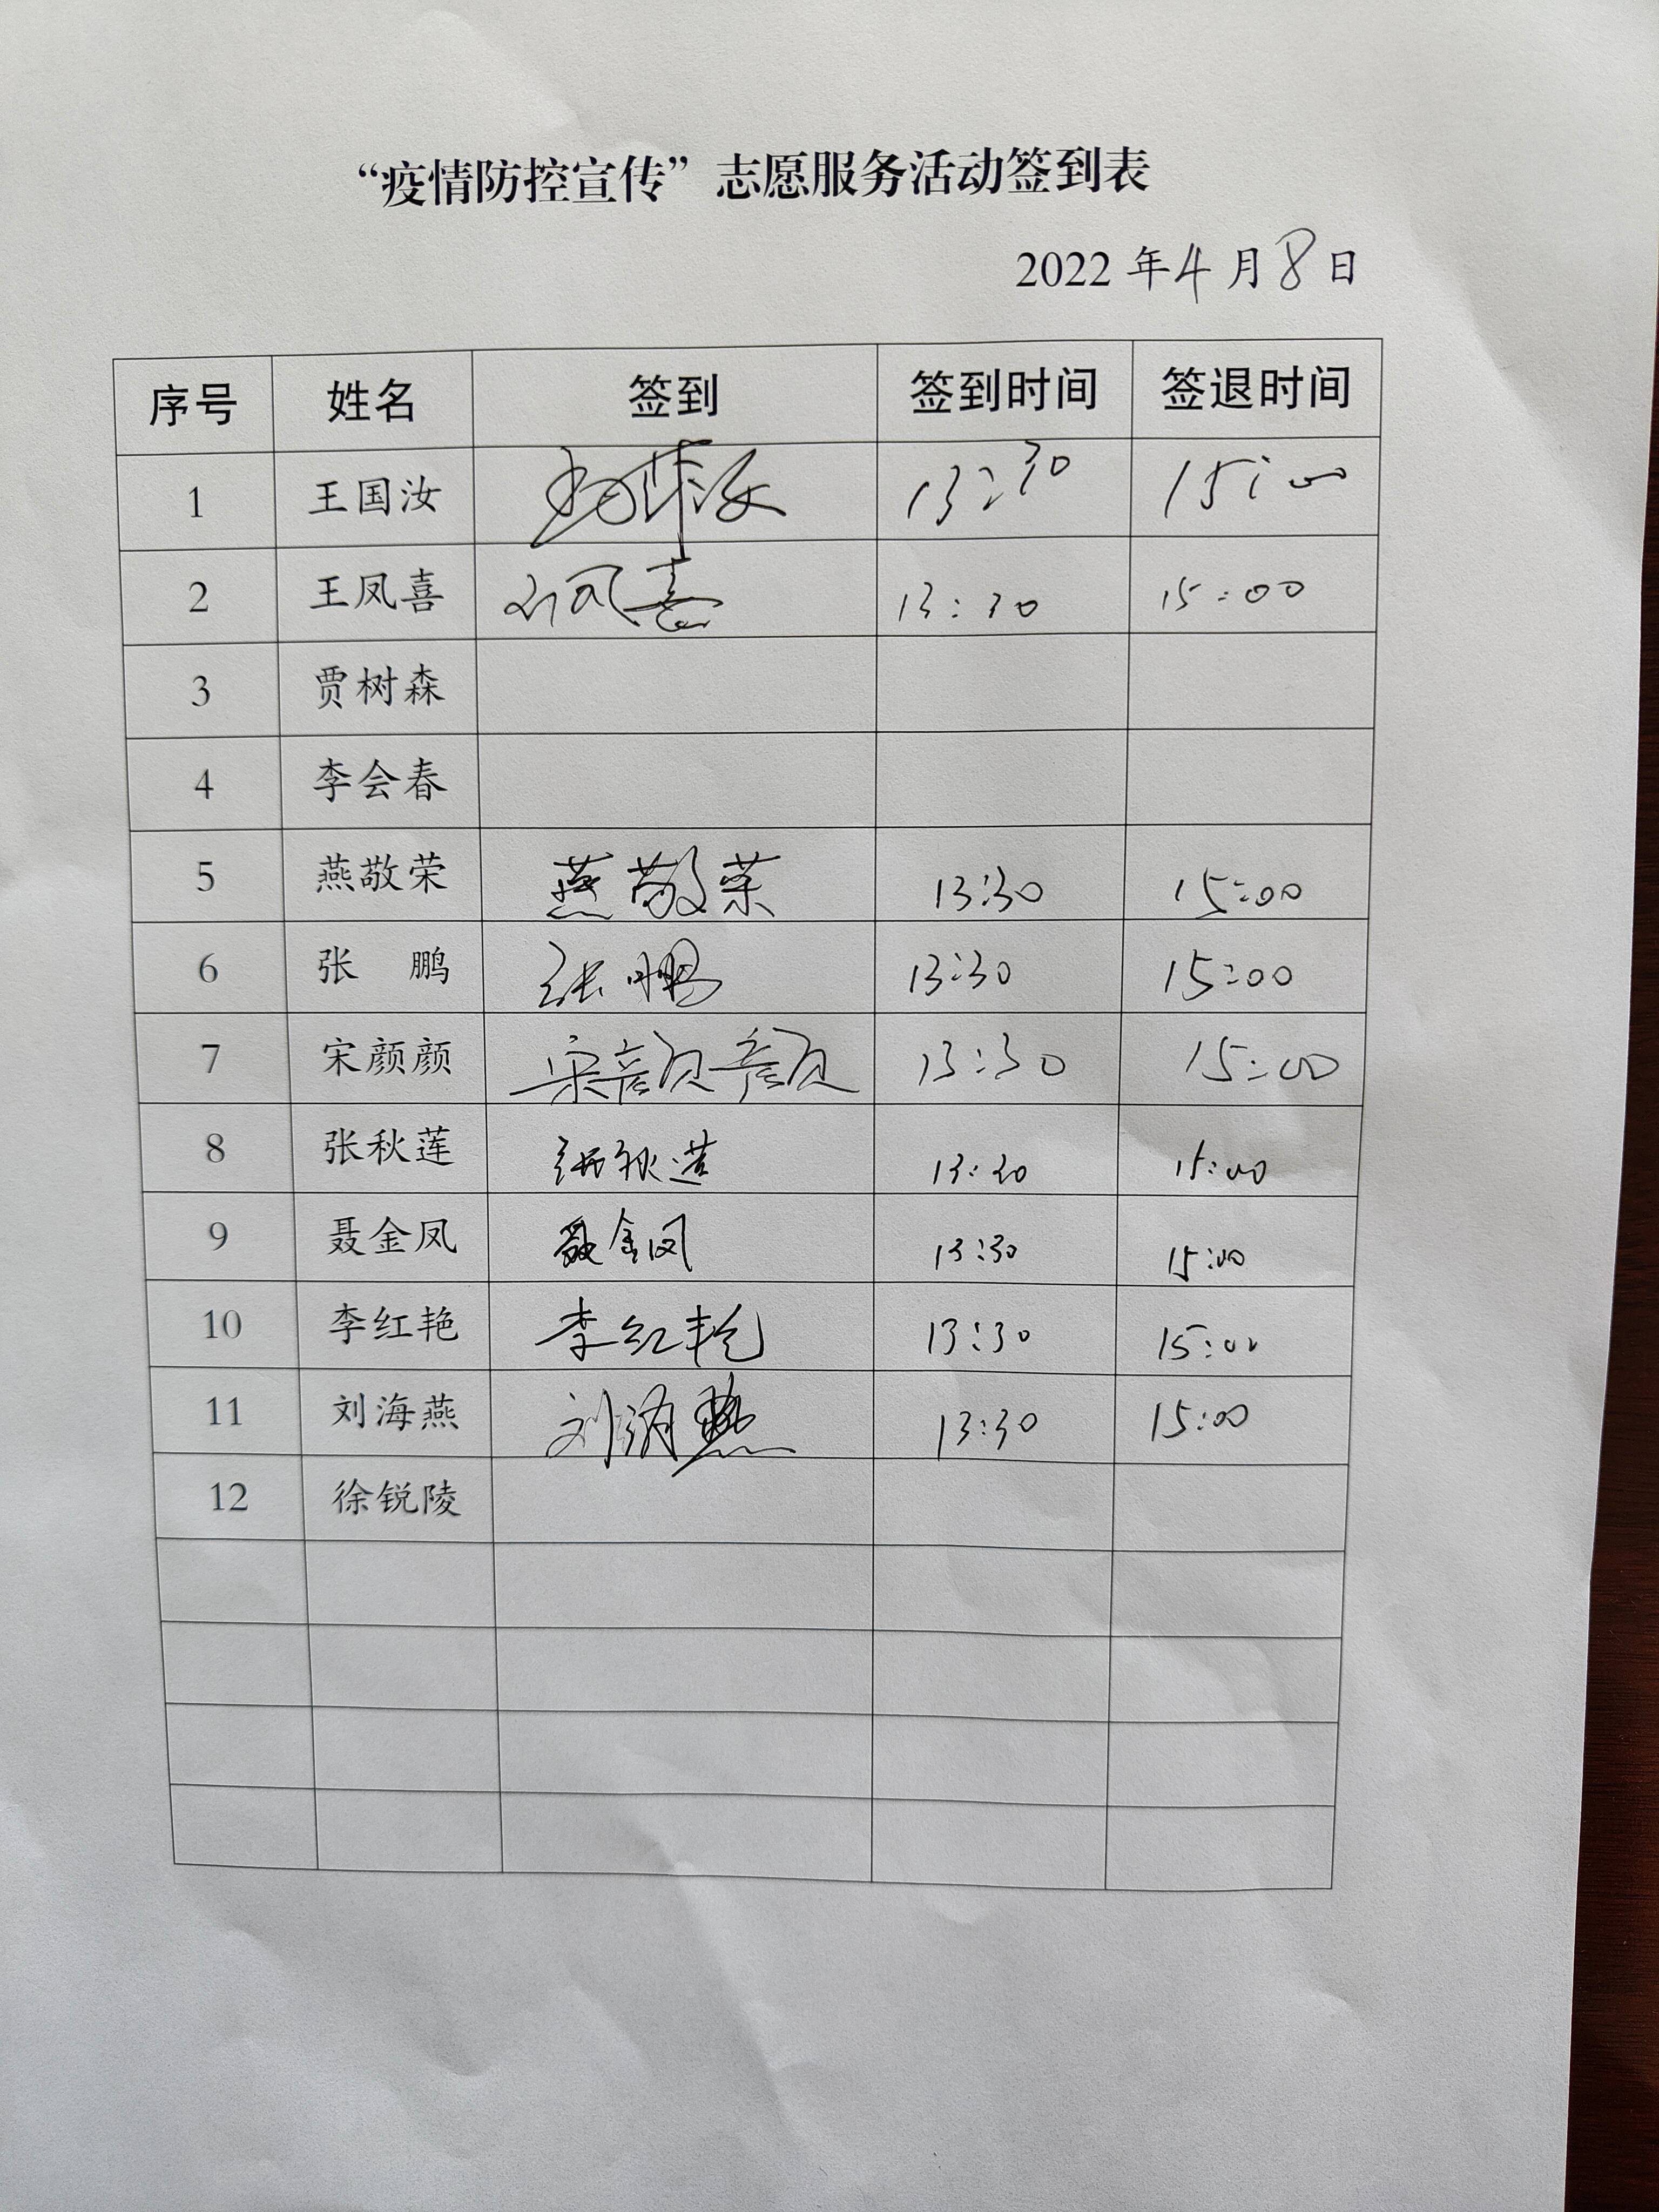 “疫情防控宣传”志愿服务活动签到表
2022 年 4 月 8 日
序号 姓名 签到 签到时间 签退时间
1 王国汝 13:30 15:00
2 王凤喜 13:30 15:00
3 贾树森
4 李会春
5 燕敬荣 燕敬荣 13:30 15:00
6 张 鹏 张鹏 13:30 15:00
7 宋颜颜 宋颜颜 13:30 15:00
8 张秋莲 张秋莲 13:30 15:00
9 聂金凤 聂金凤 13:30 15:00
10 李红艳 李红艳 13:30 15:00
11 刘海燕 刘海燕 13:30 15:00
12 徐锐陵